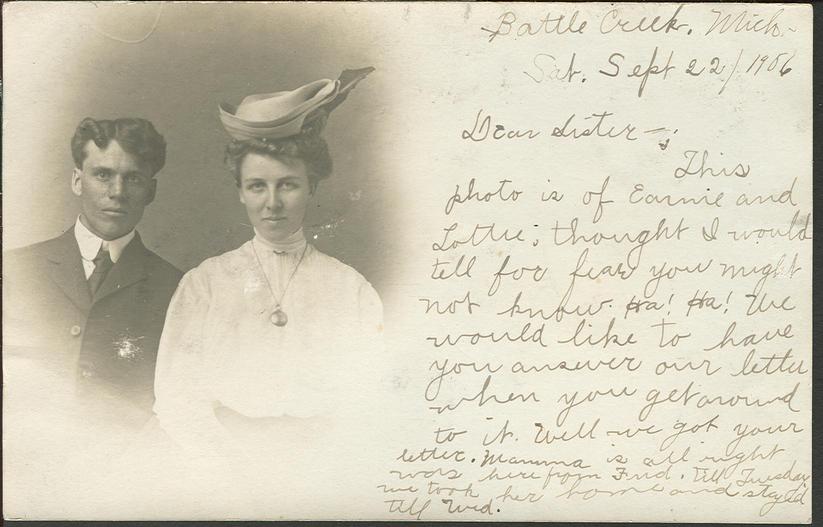 Battle Creek, Mich.
Sat. Sept 22/1906
Dear Sister—;
This
photo is of Earnie and
Lottie; thought I would
tell for fear you might
not know. Ha! Ha! We
would like to have
you answer our letter
when you get around
to it. Well we got your
letter. Mamma is all right
was here from Frid. till Tuesday
we took her home and stay'd
till Wed.